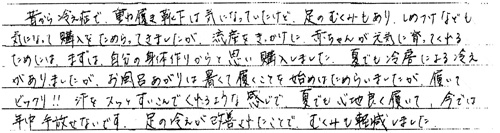 昔から冷え症で、重ね履き靴下は気になっていたけど、足のむくみもあり、しめつけなども
気になって購入をためらってきましたが、流産をきっかけに、赤ちゃんが元気に育ってくれる
ためには、まずは、自分の身体作りからと思い購入しました。夏でも冷房による冷え
がありましたが、お風呂あがりは暑くて履くことを始めはためらいましたが、履いて
ビックリ!! 汗をスッとすいこんでくれるような感じで、夏でも心地良く履いて、今では
年中手放せないです。足の冷えが改善されたことで、むくみも軽減しました